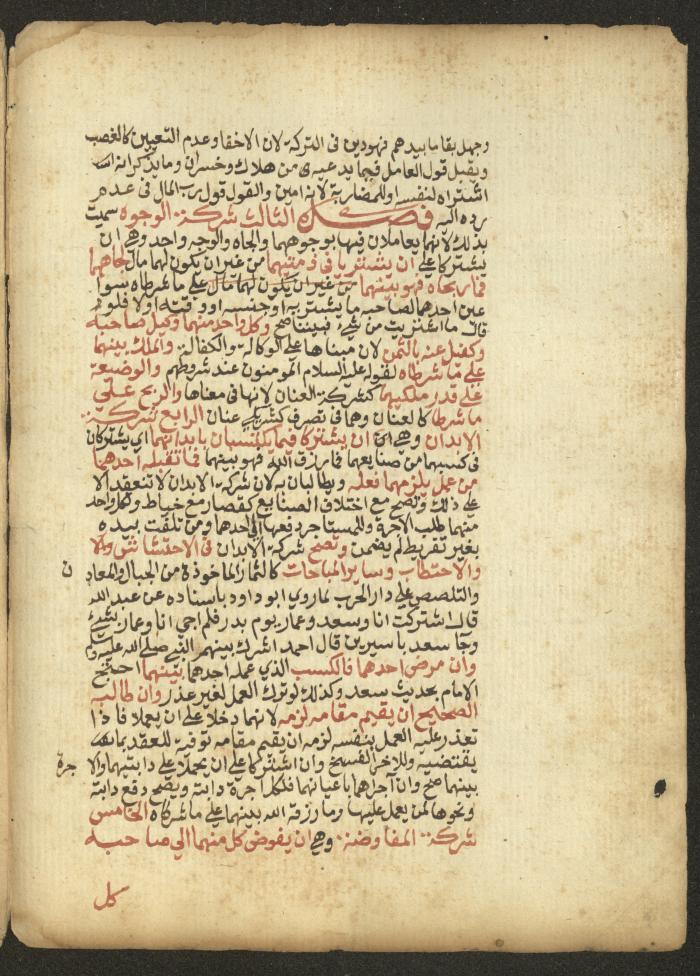 وجهل بقا ما بيدهم فهو دين فى التركة لان الاخفا وعدم التعيين كالغصب
ويقبل قول العامل فيما يدعيه من هلاك وخسران وما يذكر انه
اشتراه لنفسه او للمضاربة لانه امين والقول قول رب المال فى عدم
رده اليه فصل الثالث شركة الوجوه سميت
بذلك لانهما يعاملان فيها بوجوههما والجاه والوجه واحد وهى ان
يشتركا على ان يشتريا فى ذمتيهما من غير ان يكون لهما مال بجاههما
فما ربحاه فهو بينهما من غير ان يكون لهما مال على ما شرطاه سوا
عين احدهما لصاحبه ما يشتريه او جنسه او وقته اولا فلو
قال ما اشتريت من شئ فبيننا صح وكل واحد منهما وكيل صاحبه
وكفيل عنه بالثمن لان مبناها على الوكالة والكفالة والملك بينهما
على ما شرطاه لقوله عليه السلام المومنون عند شروطهم والوضيعة
على قدر ملكيهما كشركة العنان لانها فى معناها والربح على
ما شرطا كالعنان وهما فى تصرف كشريكى عنان الرابع شركة
الابدان وهى ان يشتركا فيما يكتسبان بابدانهما اى يشتركان
فى كسبهما من صنايعهما فما رزق الله فهو بينهما فما تقبله احدهما
من عمل يلزمهما فعله ويطالبان به لان شركة الابدان لا تنعقد الا
على ذلك وتصح مع اختلاف الصنايع كقصار مع خياط ولكل واحد
منهما طلب الاجرة وللمستاجر دفعها الى احدهما ومن تلفت بيده
بغير تفريط لم يضمن وتصح شركة الابدان فى الاحتشاش
والاحتطاب وساير المباحات كالثمار الماخوذة من الجبال والمعاد ن
والتلصص على دار الحرب لما روى ابو داود باسناده عن عبد الله
قال اشتركت انا وسعد وعمار يوم بدر فلم اجى انا وعمار بشئ
وجا سعد باسيرين قال احمد اشرك بينهم النبى صلى الله عليه وسلم
وان مرض احدهما فالكسب الذى عمله احدهما بينهما احتج
الامام بحديث سعد وكذلك لو ترك العمل لغير عذر وان طالبه
الصحيح ان يقيم مقامه لزمه لانهما دخلا على ان يعملا فاذا
تعذر عليه العمل بنفسه لزمه ان يقيم مقامه توفية للعقد بما
يقتضيه وللاخر الفسخ وان اشتركا على ان يحملا على دابتيهما والا جرة
بينهما صح وان آجراهما باعيانهما فلكل اجرة دابته ويصح دفع دابة
ونحوها لمن يعمل عليها وما رزقه الله بينهما على ما شرطاه الخامس
شركة المفاوضة وهى ان يفوض كل منهما الى صاحبه
كل